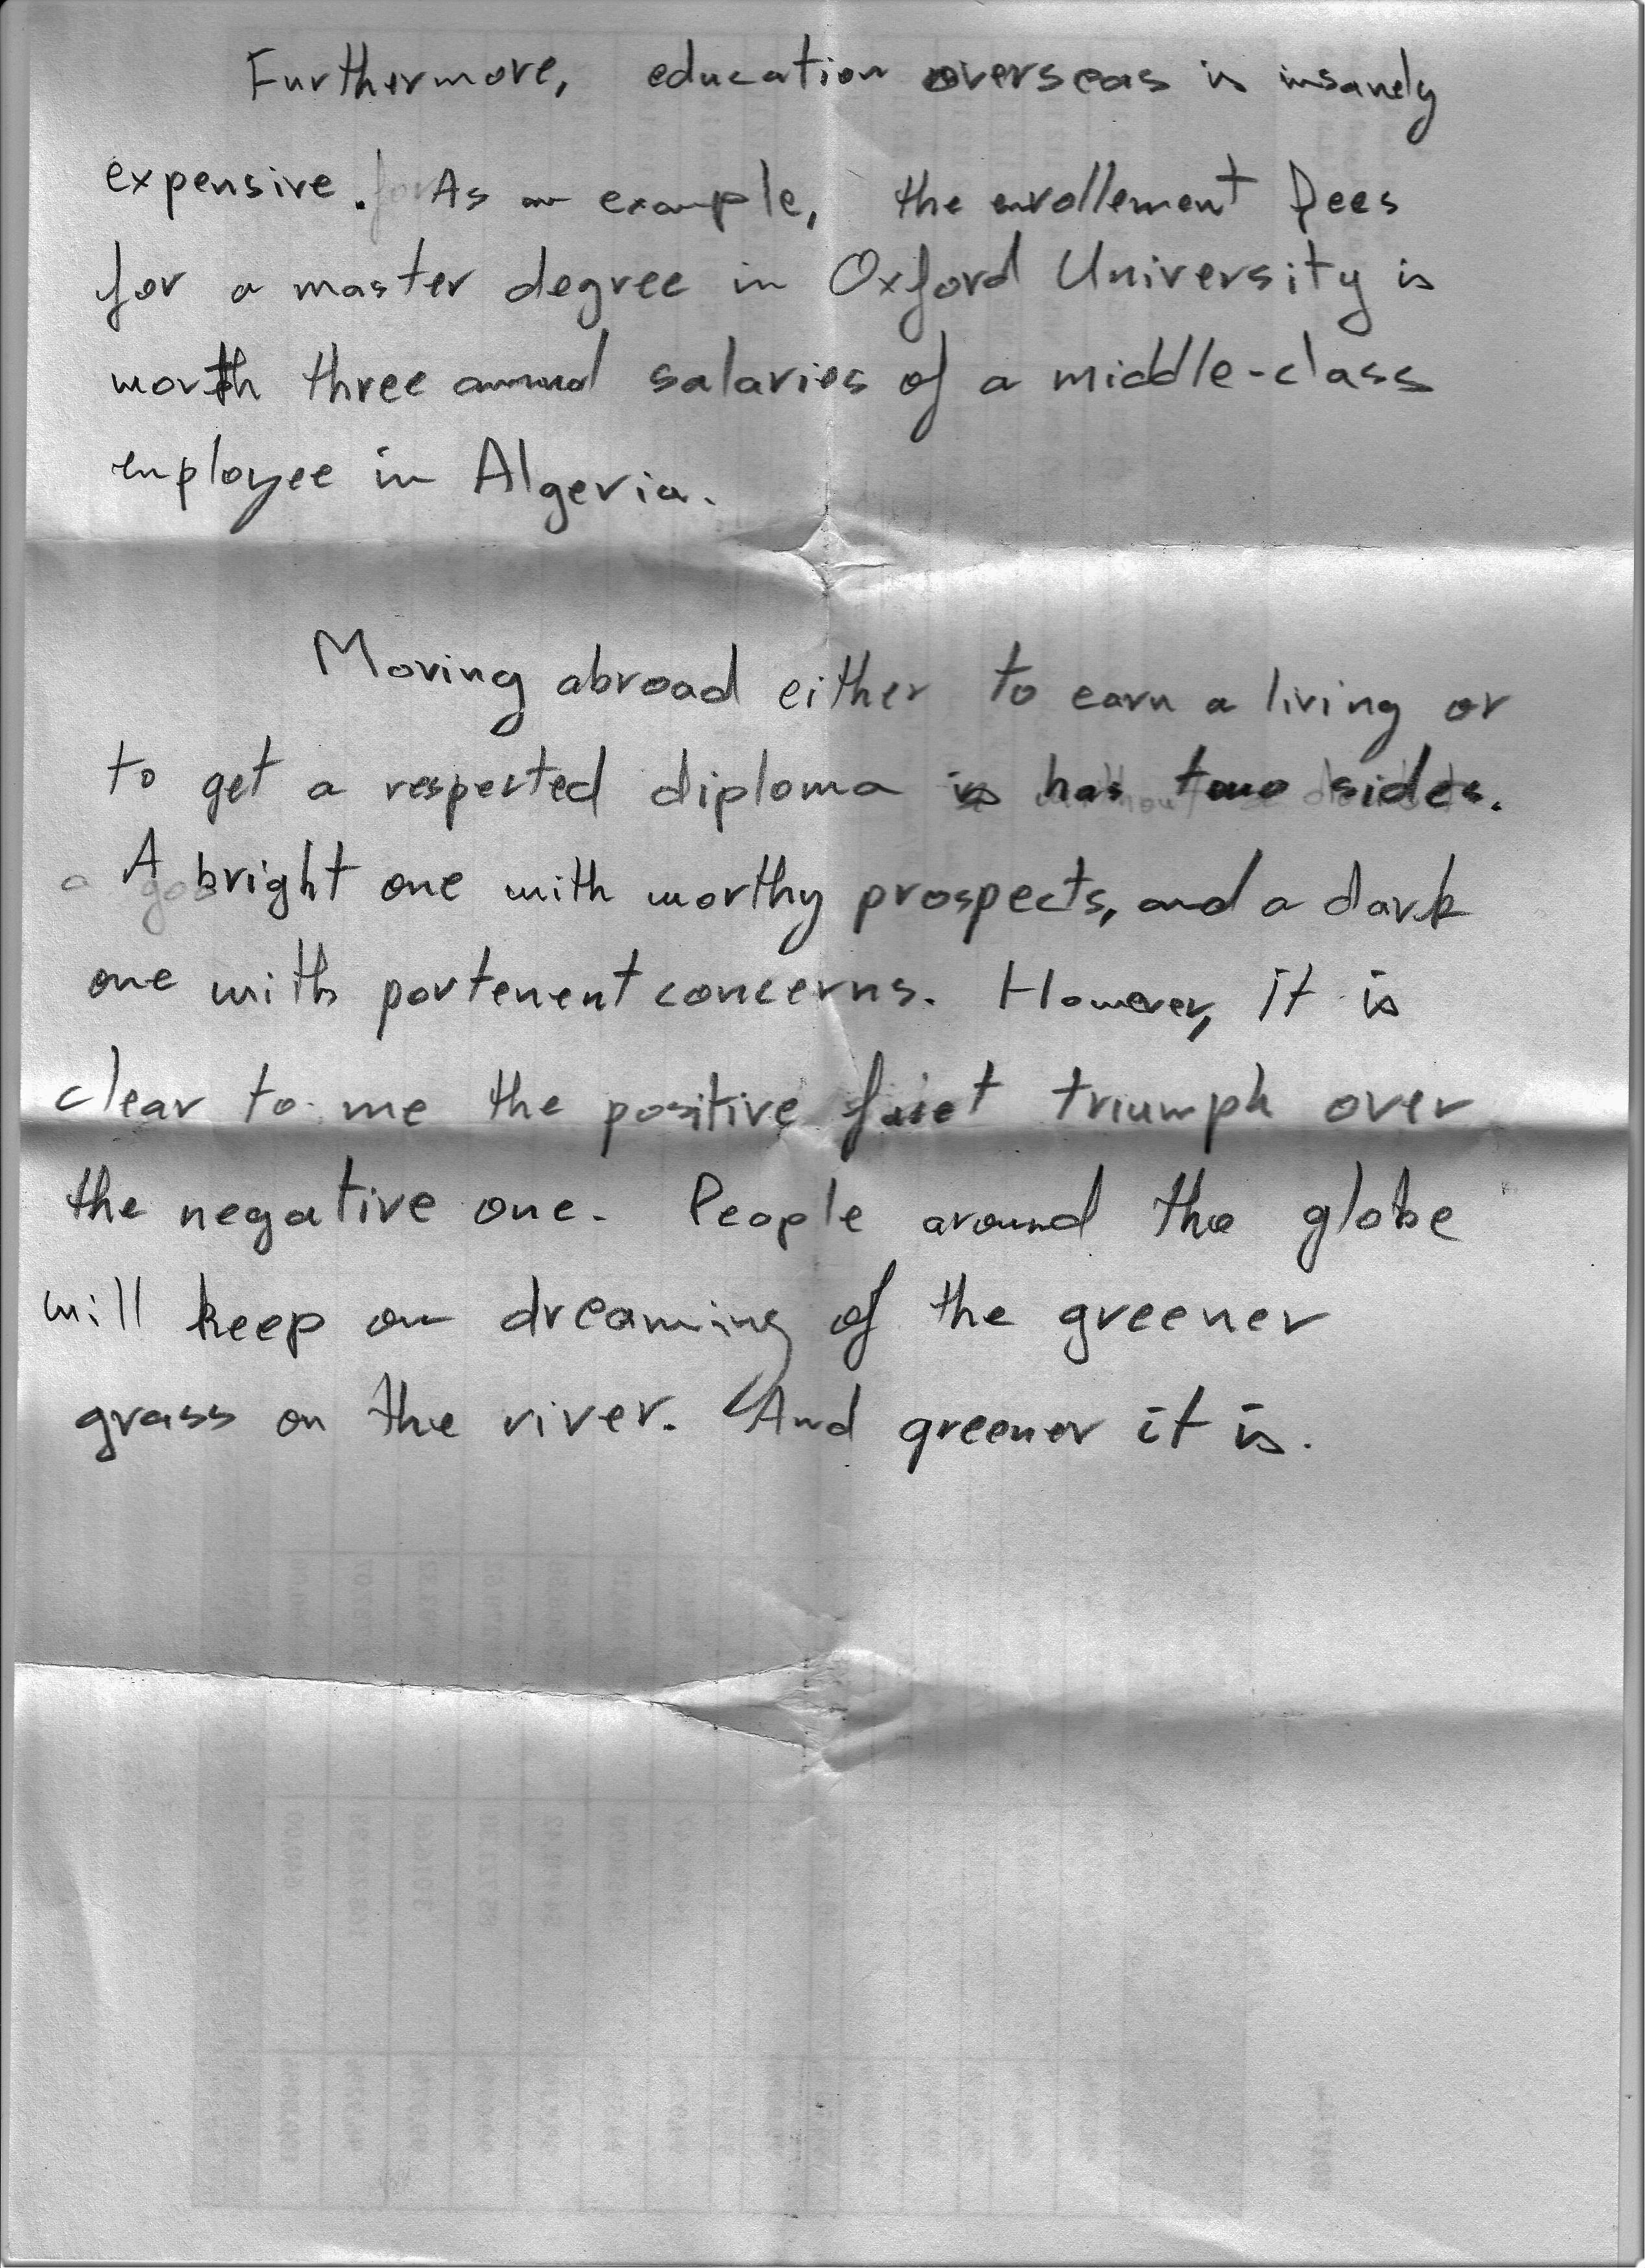 Furthermore, education overseas is insanely
expensive. As an example, the enrollement fees
for a master degree in Oxford University is
worth three annual salaries of a middle-class
employee in Algeria.
Moving abroad either to earn a living or
to get a respected diploma has two sides.
A bright one with worthy prospects, and a dark
one with portenent concerns. However, it is
clear to me the positive facet triumph over
the negative one. People around the globe
will keep on dreaming of the greener
grass on the river. And greener it is.